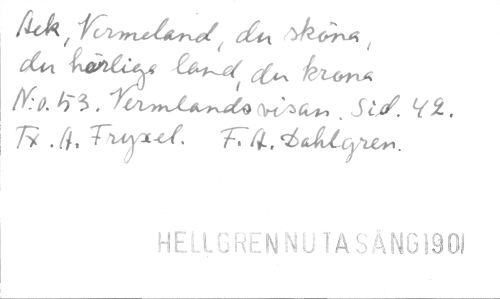 Ack, Vermeland, du sköna,
du härliga land, du krona
N:o. 53. Vermlandsvisan. Sid. 42.
Tx. A. Fryxel. F. A. Dahlgren.
HELLGREN NUTA SÅNG 1901